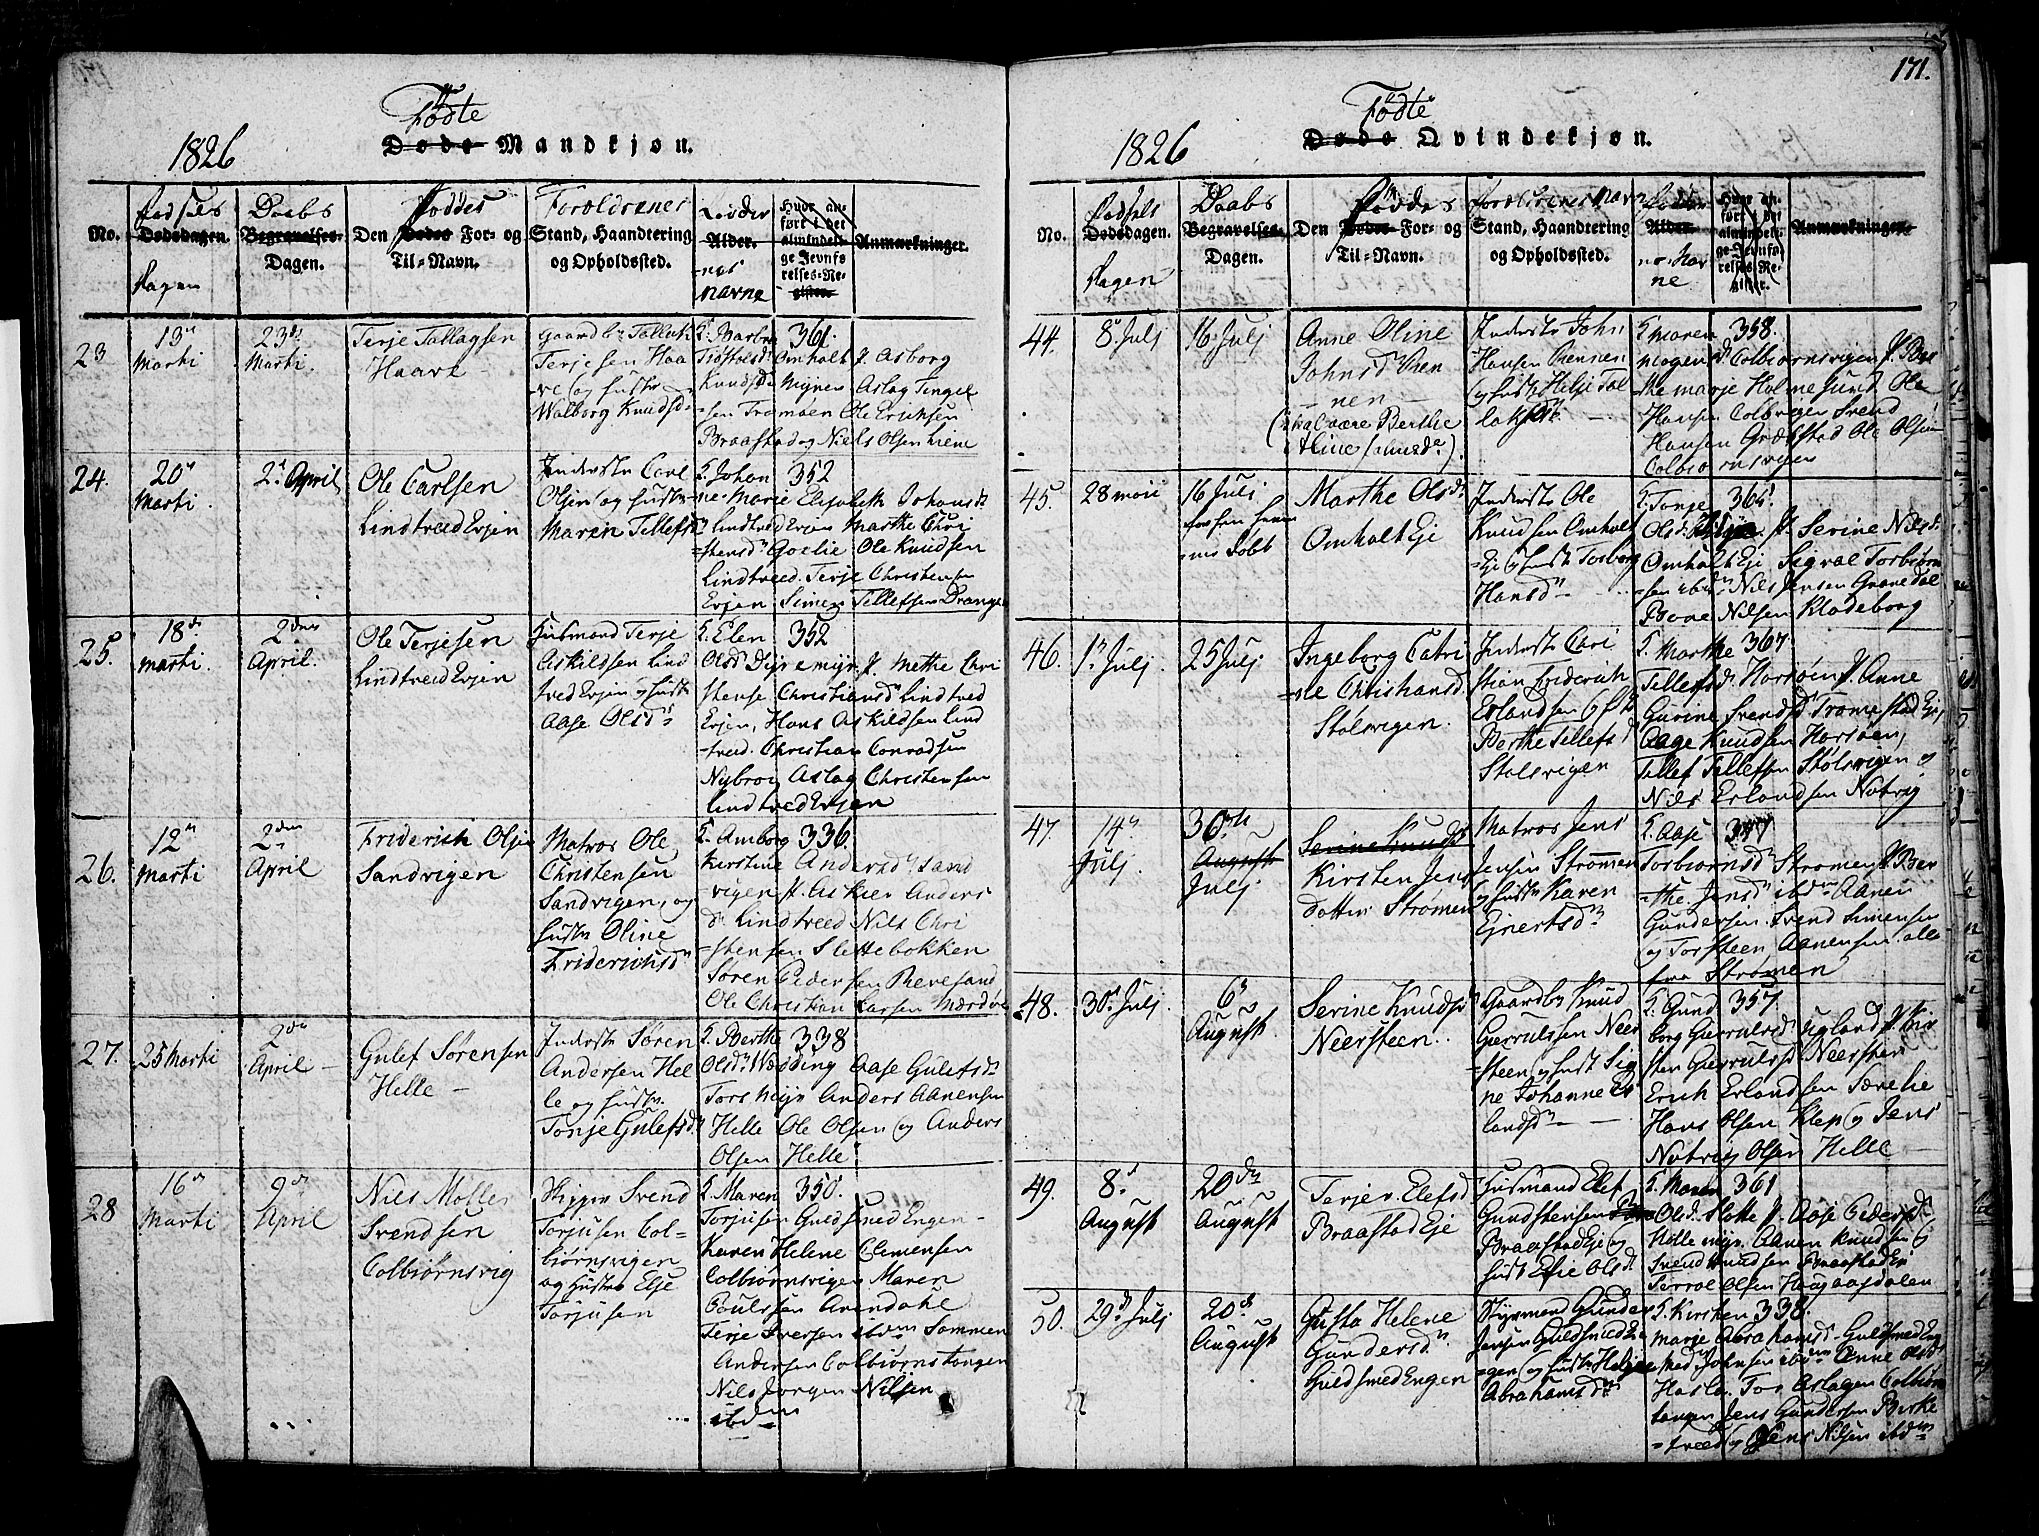 1826
Fødte
Døde Mandkjøn.
No.
Fødsels
Dødsdagen.
Dagen
Daabs
Begravelses-
Dagen.
Føddes
Den Dødes For- og
Til-Navn.
Forældrenes
Stand, Haandtering
og Opholdssted.
Fadder
Alder.
nes
Navne
Hvor an-
ført i det
almindeli-
ge Jevnfø-
relses-Re-
gister.
Anmærkninger.
23
13n
Marti
23de
Marti.
Terje Tallagsen
Haave
Gaardbr Tallak
Terjesen Haa
ve og hustr
Walborg Knudsdr
F. Barbro 361.
Omholt J. Asborg
Knudsd Mijren Aslag Tingel
sen Tromøen Ole Ericksen
Braastad og Niels Olsen Liene
24.
20n
Marti.
2n April
Ole Carlsen
Lindtveed Evjen
Inderste Carl
Olsen og hustr
Maren Tellefsd
F. Johan 352
ne Marie Elisabeth Johansd
Lindtved Evjen Marthe Chri
stensd Goelie Ole Knudsen
Lindtveed. Terje Christensen
Evjen Simen Tellefsen Drange
25.
18de
Marti.
2den
April.
Ole Terjesen
Lindtveid Evjen
Husmand Terje
Askildsen Lind
tved Evjen og hustr
Aase Olsdr
F. Elen 352
Olsd Dijvemijr J. Methe Chri
stense Christiansd Lindtved
Evjen, Hans Askildsen Lind
tved. Christian Conradsen
Nijbroe Aslag Christensen
Lindtved Evjen
26.
12n
Marti
2den
April
Friderich Olsen
Sandvigen
Matros Ole
Christensen
Sandvigen, og
hustr Oline
Friderichsdr
F. Amborg 336.
Kirstine Andersdr Sand
vigen J. Askier Anders
d. Lindtveed Niels Chri
stensen Slettebokken
Søren Pedersen Revesand
Ole Christian Larsen Mærdøe
27.
25 Marti
2den
April
Gulef Sørensen
Helle
Inderste Søren
Andersen Hel
le og hustr
Tonje Gulefsdr
F. Berthe 338
Olsdr Wedding Aase Gulefsdr
Tors Mijr Anders Aanensen
Helle Ole Olsen og Anders
Olsen Helle
28
16n
Marti
9n
April
Niels Møller
Svendsen
Colbiørnsvig
Skipper Svend
Torjusen Col-
biørnsvigen
og hustr Else
Torjusen
F. Maren 350.
Torjusen Guldsmed Engen
Karen Helene Clemensen
Colbiørnsvigen Maren
Poulsen Arendahl
Terje Iversen ibdm Sommen
Andersen Colbiørnstangen
Niels Jørgen Nilsen
ibdm
171.
1826
Fødte
Døde Qvindekjøn.
No.
Fødsels
Dødsdagen.
Dagen
Daabs
Begravelses-
Dagen.
Føddes
Den Dødes For- og
Til-Navn.
Forældrenes Navn
Stand, Haandtering
og Opholdssted.
Fadder
Alder.
ne-Nav
ne
Hvor an-
ført i det
almindeli-
ge Jevnfø-
relses-Re-
gister.
Anmærkninger.
44.
8n Julj
16 Julj
Anne Oline
Johnsd Vren
nen
(skal være Berthe
Aline Johnsdr).
Inderste John
Hansen Vrennen
og hust Helje Tal
laksdr
F. Maren 358.
Mogensd Colbiørnsvigen J. Ber
the Marje Holmesund Ole
Hansen Colbvigen Svend
Hansen Græfstad Ole Olsen
Colbiørnsvigen
45.
28 Maii
16 Julj
forhen hjem
me døbt
Marthe Olsdr
Omholt Eje
Inderste Ole
Knudsen Omholt
Eje og hust Torborg
Hansdr
F. Tonje 365.
Olsd. J. Serine Nilsd.
Omholt Eje Sigval Torbiørn
sen ibdm Niels Jensen Gravedal
Boye Nilsen Klodeborg
46.
1n Julj.
25 Julj
Ingeborg Catri
ne Christiansd.
Stølsvigen.
Inderste Chri
stian Friderich
Erlandsen og hust
Berthe Tellefsd
Stølsvigen
F. Marthe 367
Tellefsd. Horsøen J. Anne
Gurine Svendsd Tromestad Eje,
Aage Knudsen Horsøen,
Tellef Tellefsen Stølsvigen og
Niels Erlandsen Notvig
47
14n
Julj.
30te
August
Julj.
Serine Knudsd
Kirsten Jens
datter Strømen
Matros Jens
Jensen Strømmen
og hustr Karen
Gjertsdr
F. Aase 357
Torbiørnsdr Strømen J. Ber
the Jensdr ibdm Aanen
Gundersen Svend Simensen
og Torsteen Aanensen alle
fra Strømen
48.
30n Julj
6n
August.
Serine Knudsd
Neersteen.
Gaardbr Knud
Giervulsen Neer
steen og hust Sig
ne Johanne Er
landsdr
F. Gund 357
borg Giervulsdr Ugland J. Kir
sten Giervulsd Neersteen
Erich Erlandsen Særehe
Hans Olsen Klep og Jens
Notvig Olsen Helle
49.
8n
August
20de
August
Terje Elefsd
Braastad Eje
Husmand Elef
Gundstensen
Braastad Eje og
hust Elie Olsd
F. Maren 361
Olsd. Slotte J. Aase Pedersd
Helle mijr. Aanen Knudsen og
Svend Knudsen Braastad Ei
Olsen Haugaasdalen
50.
29de Julj
20de
August
Gusta Helene
Gundersdr
Guldsmed Engen
Stijrmand Gunder
Jensen Guldsmed En
gen og hustr Helje
Abrahamsdr
F. Kirsten 338.
Marje Abrahamsd Guldsmed Eng
Johnsen ibdm Anne Olsd
Hasla. Tor Aslagen Colbiørn
tangen Jens Gundersen Birke
tveed og Jens Nilsen ibdm